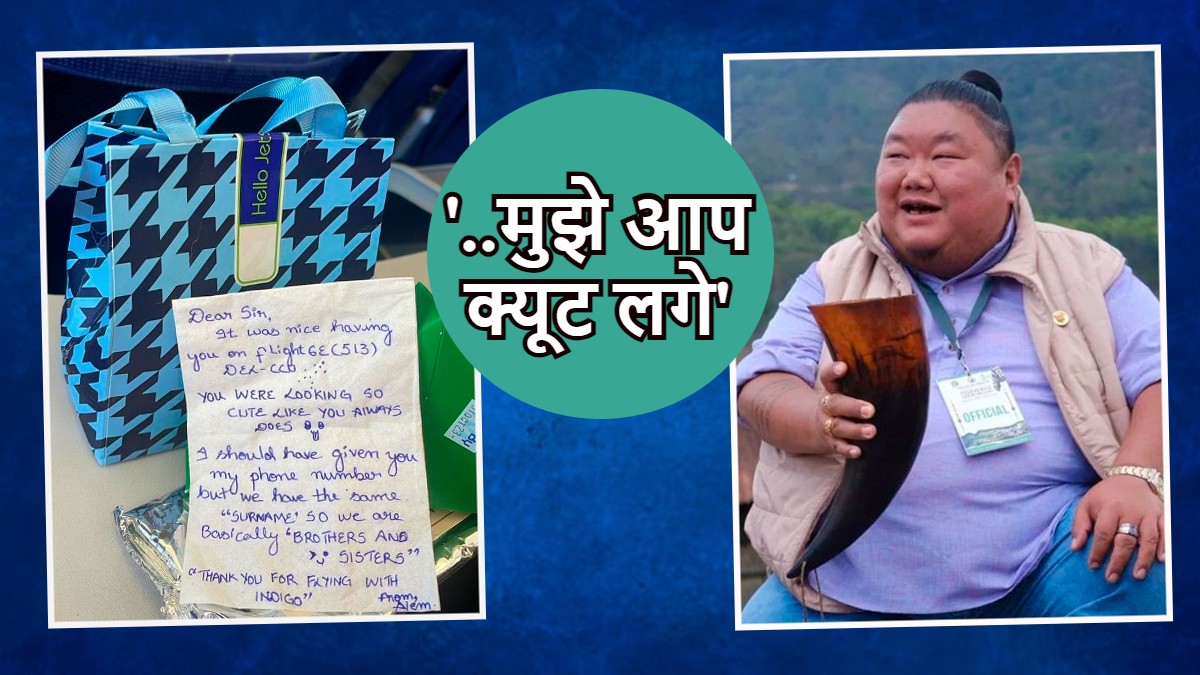 Hello Jet
Dear Sir,
It was nice having
you on flight 6E(513)
DEL-CCU
YOU WERE LOOKING SO
CUTE LIKE YOU ALWAYS
DOES
I should have given you
my phone number
but we have the same
"SURNAME' SO we are
Basically 'BROTHERS AND
SISTERS"
"THANK YOU FOR FLYING WITH
INDIGO"
From,
'..मुझे आप
क्यूट लगे'
OFFICIAL